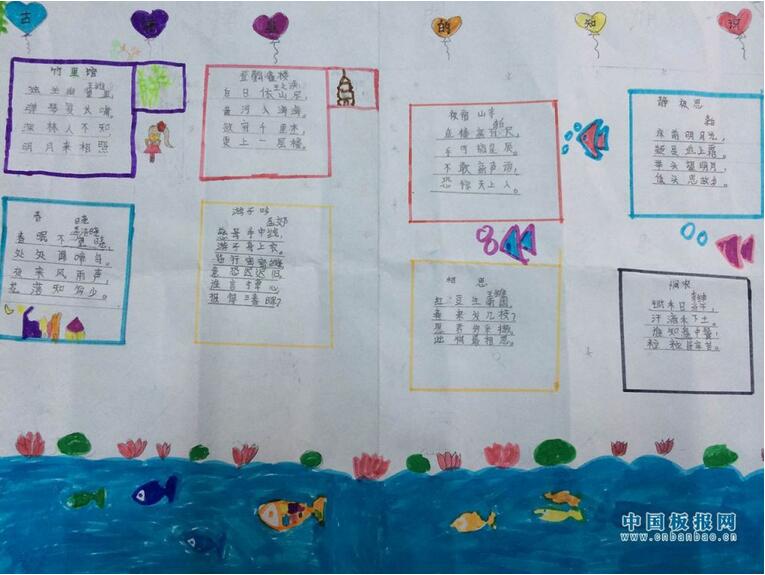 古 的 知 识
竹里馆
王维
独坐幽篁里,
弹琴复长啸,
深林人不知,
明月来相照
登鹳雀楼
王之涣
白日依山尽,
黄河入海流。
欲穷千里木,
更上一层楼。
夜宿山寺
危楼高百尺,
手可摘星辰。
不敢高声语,
恐惊天上人。
静夜思
床前明月光,
疑是地上霜。
举头望明月,
低头思故乡。
春晓
孟浩然
春眠不觉晓,
处处闻啼鸟。
夜来风雨声,
花落知多少。
游子吟
孟郊
慈母手中线,
游子身上衣。
临行密密缝,
意恐迟迟归。
谁言寸草心,
报得三春晖?
相思
王维
红豆生南国,
春来发几枝?
愿君多采撷,
此物最相思。
悯农
李绅
锄禾日当午,
汗滴禾下土。
谁知盘中餐,
粒粒皆辛苦。
中国板报网
www.cnbanbao.cn